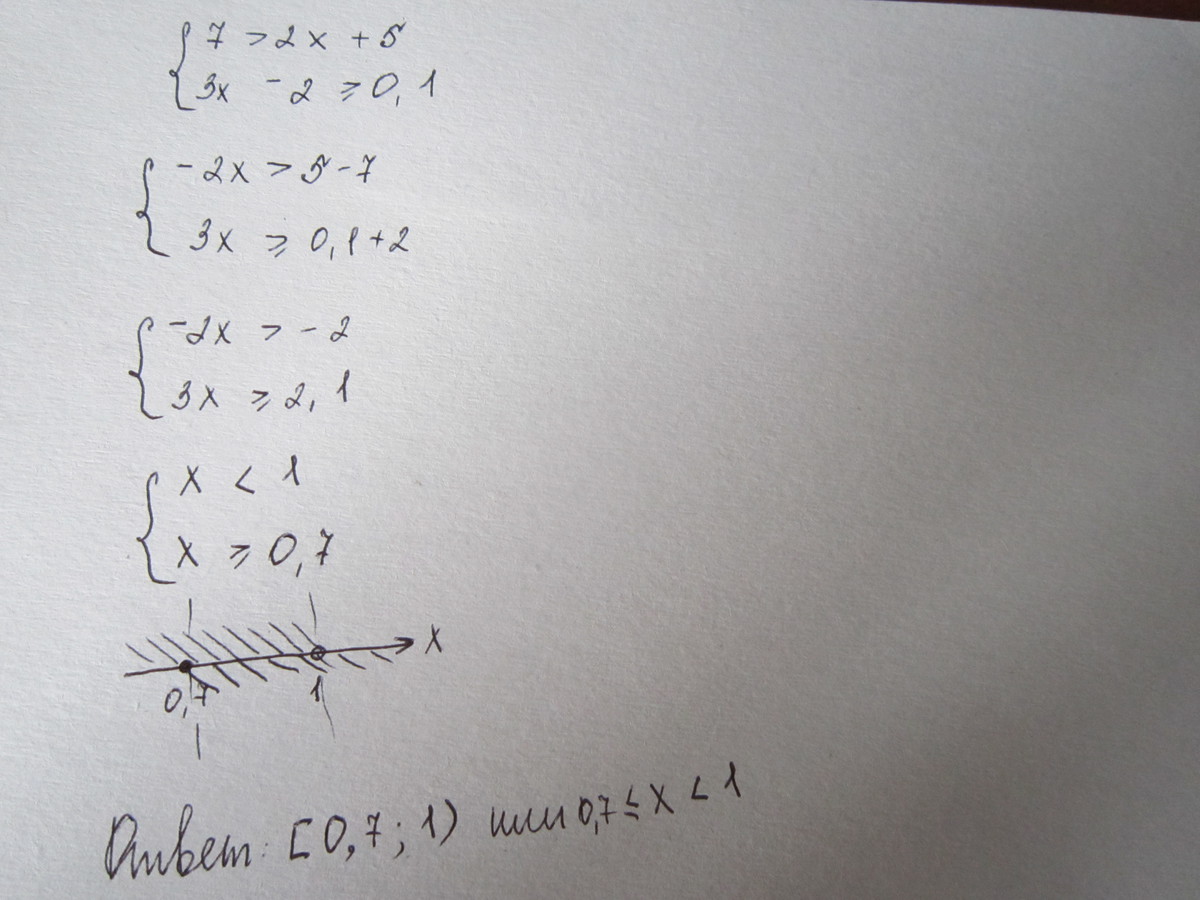 7 > 2x + 5
3x - 2 ⩾ 0,1
-2x > 5-7
3x ⩾ 0,1+2
-2x > -2
3x ⩾ 2,1
x < 1
x ⩾ 0,7
x
0,7 1
Ответ: [0,7; 1) или 0,7 ≤ x < 1